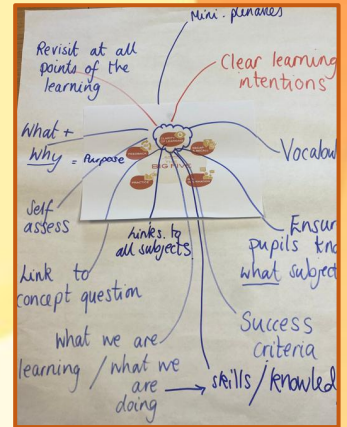 Mini-plenaries
Revisit at all
points of the
learning
Clear learning
intentions
What +
Why = Purpose
BIG FIVE
Vocabu
Self
assess
Links to
all subjects
Ensur
pupils kno
what subject
Link to
concept question
Success
criteria
What we are
learning / what we
are
doing
skills / knowled